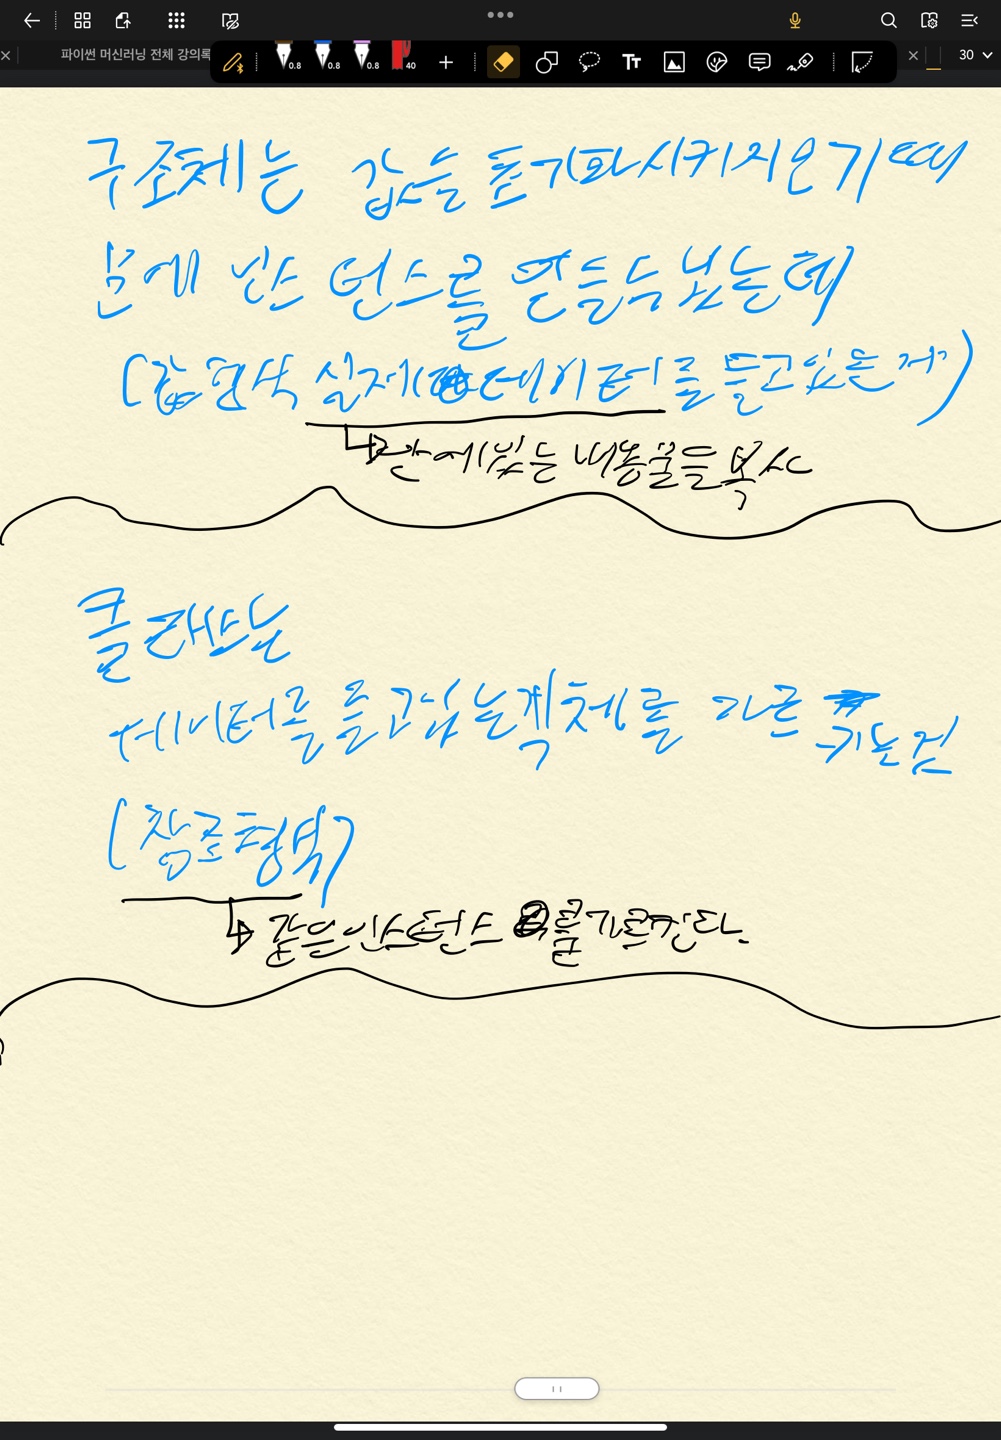 파이썬 머신러닝 전체 강의록
0.8 0.8 0.8 40 Tr 30
구조체는 값을 초기화시키지 않기 때
문에 인스턴스를 만들수 있는데
(값형식 실제 데이터를 들고있는 게)
안에있는 내용물을 복사
클래스는
데이터를 들고있는객체를 가르
키는것
(참조형식)
같은인스턴스를 가르킨다.